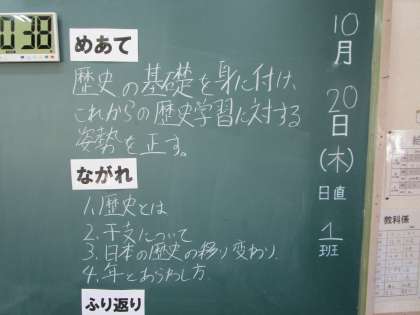 0:38
めあて
歴史の基礎を身に付け、
これからの歴史学習に対する
姿勢を正す。
ながれ
1,歴史とは
2.干支について
3.日本の歴史の移り変わり
4.年とあらわし方
ふり返り
10
月
20
日
(木)
日直
1
班
教科係